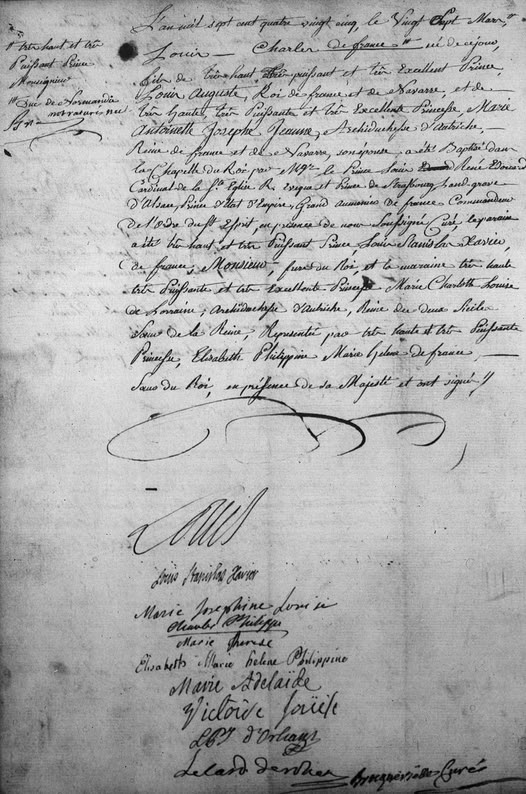 L'an mil sept cent quatre vingt cinq, le Vingt Sept Mars,
" très haut et très
Puissant Prince
Monseigneur
" Duc de Normandie
Louis — Charles de france " né de ce jour,
fils de très haut très puissant et très Excellent Prince,
Louis Auguste, Roi de france et de Navarre, et de
très haute, très Puissante et très Excellente Princesse, Marie
Antoinette Josephe Jeanne, Archiduchesse d'Autriche,
Reine de france et de Navarre, son épouse a été Baptisé dans
la Chapelle du Roi, par Mgr. le Prince Louis René Edouard
Cardinal de la Ste Eglise R. Evêque et Prince de Strasbourg Landgrave
d'Alsace, Prince d'Etat d'Empire, Grand aumonier de france Commandeur
de l'Ordre du St Esprit, en présence de nous Soussigné Curé, le parain
a été très haut et très Puissant Prince, Louis Stanislas Xavier
de france, Monsieur, frere du Roi, et la maraine très haute
très Puissante et très Excellente Princesse Marie Charlotte Louise
de Lorraine, Archiduchesse d'Autriche, Reine des deux Sicile
Sœur de la Reine, Représentée par très haute et très Puissante
Princesse, Elisabeth Philippine Marie helene de france, —
Sœur du Roi, en présence de sa Majesté et ont signé //
Louis
Louis Stanislas Xavier
Marie Josephine Louise
Charles Philippe
Marie therese
Elisabeth Marie helene Philippine
Marie Adelaïde
Victoire Louise
L P J d'Orleans
Le Card de rohan
Brocquevielle Curé